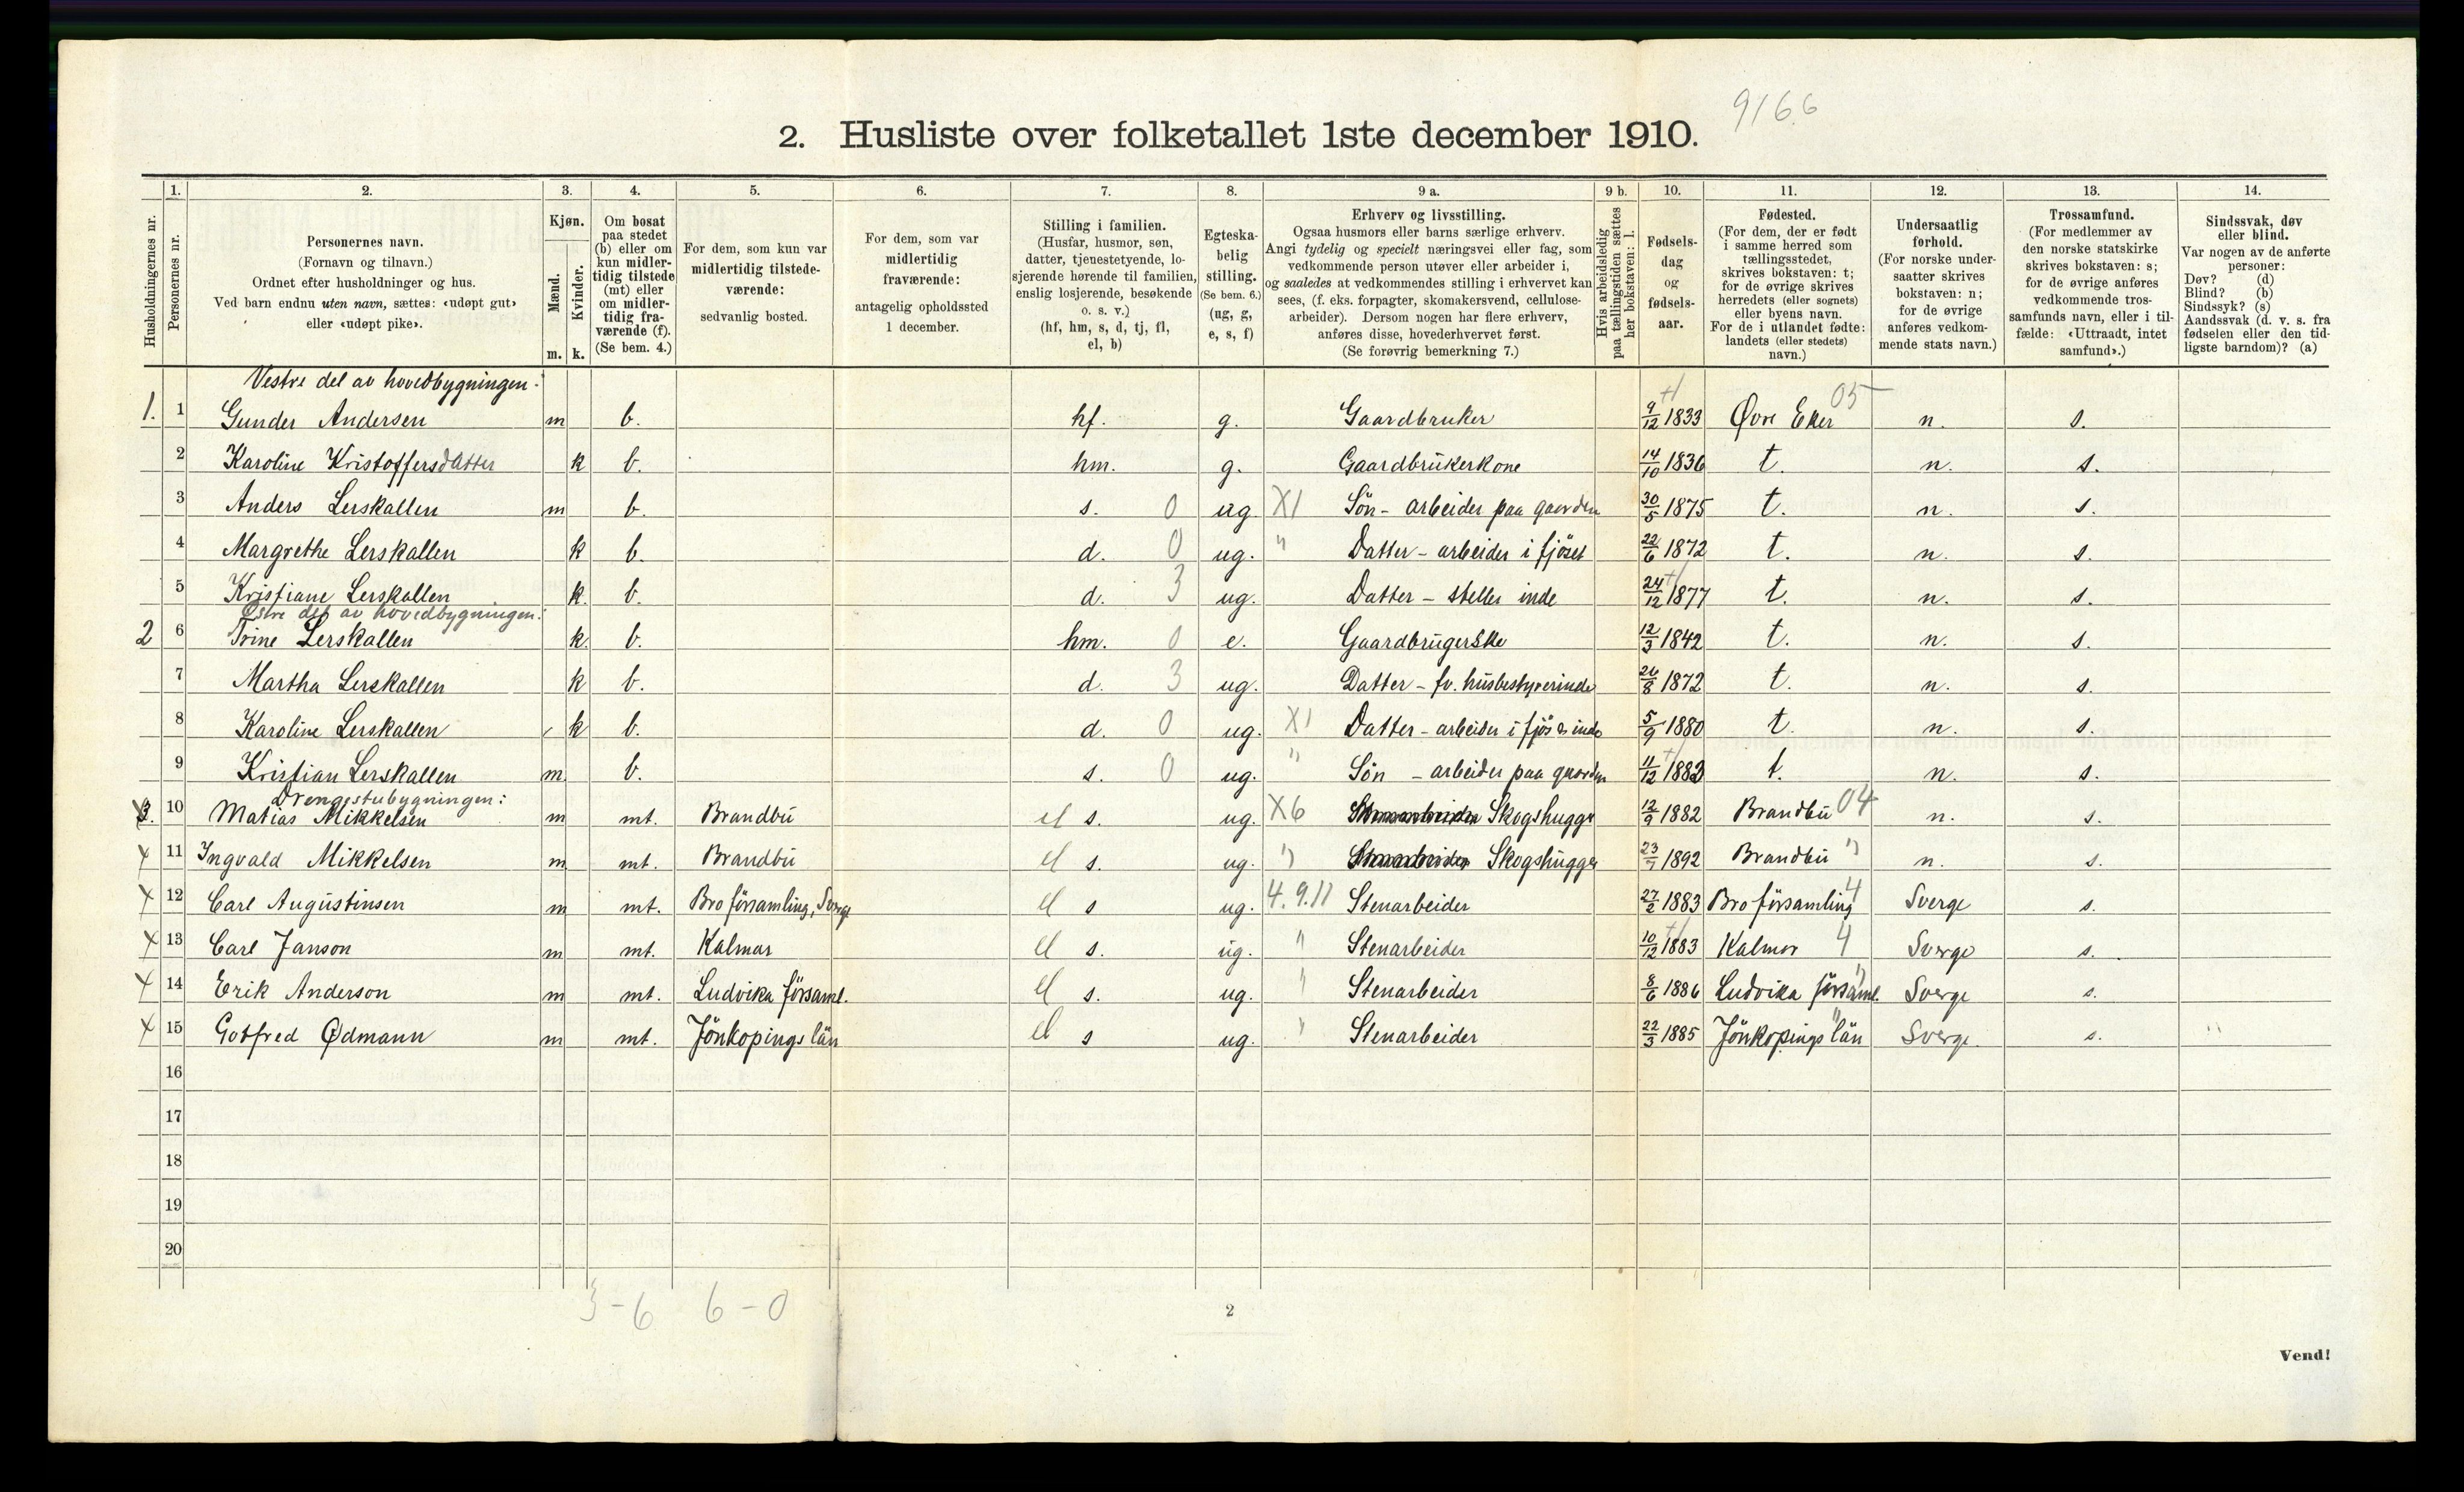 9166
2. Husliste over folketallet 1ste december 1910.
Husholdningernes nr.
1. Personernes nr.
2. Personernes navn.
(Fornavn og tilnavn.)
Ordnet efter husholdninger og hus.
Ved barn endnu uten navn, sættes: «udøpt gut»
eller «udøpt pike».
3. Kjøn.
Mænd. Kvinder.
m. k.
4. Om bosat
paa stedet
(b) eller om
kun midler-
tidig tilstede
(mt) eller
om midler-
tidig fra-
værende (f).
(Se bem. 4.)
5. For dem, som kun var
midlertidig tilstede-
værende:
sedvanlig bosted.
6. For dem, som var
midlertidig
fraværende:
antagelig opholdssted
1 december.
7. Stilling i familien.
(Husfar, husmor, søn,
datter, tjenestetyende, lo-
sjerende hørende til familien,
enslig losjerende, besøkende
o. s. v.)
(hf, hm, s, d, tj, fl,
el, b)
8. Egteska-
belig
stilling.
(Se bem. 6.)
(ug, g,
e, s, f)
9 a. Erhverv og livsstilling.
Ogsaa husmors eller barns særlige erhverv.
Angi tydelig og specielt næringsvei eller fag, som
vedkommende person utøver eller arbeider i,
og saaledes at vedkommendes stilling i erhvervet kan
sees, (f. eks. forpagter, skomakersvend, cellulose-
arbeider). Dersom nogen har flere erhverv,
anføres disse, hovederhvervet først.
(Se forøvrig bemerkning 7.)
9 b. Hvis arbeidsledig
paa tællingstiden sættes
her bokstaven: l.
10. Fødsels-
dag
og
fødsels-
aar.
11. Fødested.
(For dem, der er født
i samme herred som
tællingsstedet,
skrives bokstaven: t;
for de øvrige skrives
herredets (eller sognets)
eller byens navn.
For de i utlandet fødte:
landets (eller stedets)
navn.)
12. Undersaatlig
forhold.
(For norske under-
saatter skrives
bokstaven: n;
for de øvrige
anføres vedkom-
mende stats navn.)
13. Trossamfund.
(For medlemmer av
den norske statskirke
skrives bokstaven: s;
for de øvrige anføres
vedkommende tros-
samfunds navn, eller i til-
fælde: «Uttraadt, intet
samfund».)
14. Sindssvak, døv
eller blind.
Var nogen av de anførte
personer:
Døv? (d)
Blind? (b)
Sindssyk? (s)
Aandssvak (d. v. s. fra
fødselen eller den tid-
ligste barndom)? (a)
Vestre del av hovedbygningen.
1. 1 Gunder Andersen m b. hf. g. Gaardbruker 9/12 1833 Øvre Eker 05 n. s.
2 Karoline Kristoffersdatter k b. hm. g. Gaardbrukerkone 14/10 1836 t. n. s.
3 Anders Lerskallen m b. s. 0 ug X1 Søn - arbeider paa gaarden 30/5 1875 t. n. s.
4 Margrethe Lerskallen k b. d. 0 ug. " Datter - arbeider i fjöset 22/6 1872 t. n. s.
5 Kristiane Lerskallen k. b. d. 3 ug. Datter - steller inde 24/12 1877 t. n. s.
Østre del av hovedbygningen:
2 6 Trine Lerskallen k. b. hm. 0 e. Gaardbrugerske 12/3 1842 t. n. s.
7 Martha Lerskallen k b. d. 3 ug. Datter - fv. husbestyrerinde 26/8 1872 t. n. s.
8 Karoline Lerskallen k b. d. 0 ug. X1 Datter - arbeider i fjös & inde 5/9 1880 t. n. s.
9 Kristian Lerskallen m. b. s. 0 ug. " Sön - arbeider paa gaarden 11/12 1883 t. n. s.
Drengestubygningen:
3. 10 Matias Mikkelsen m mt. Brandbu el s. ug. X6 Skogshugger 12/9 1882 Brandbu 04 n. s.
x 11 Ingvald Mikkelsen m mt. Brandbu el s. ug. " Skogshugger 23/7 1892 Brandbu " n. s.
x 12 Carl Augustinsen m mt. Bro församling, Sverge el s ug. 4.9.11 Stenarbeider 27/2 1883 Bro församling 4 Sverge s.
x 13 Carl Janson m mt. Kalmar el s. ug. " Stenarbeider 10/12 1883 Kalmar 4 Sverge s.
x 14 Erik Anderson m mt. Ludvika församl. el s. ug. " Stenarbeider 8/6 1886 Ludvika församl. " Sverge s.
x 15 Gotfred Ødmann m mt. Jönkopings län el s ug. " Stenarbeider 22/3 1885 Jönkopings län " Sverge s.
16
17
18
19
20
3-6 6-0
2
Vend!